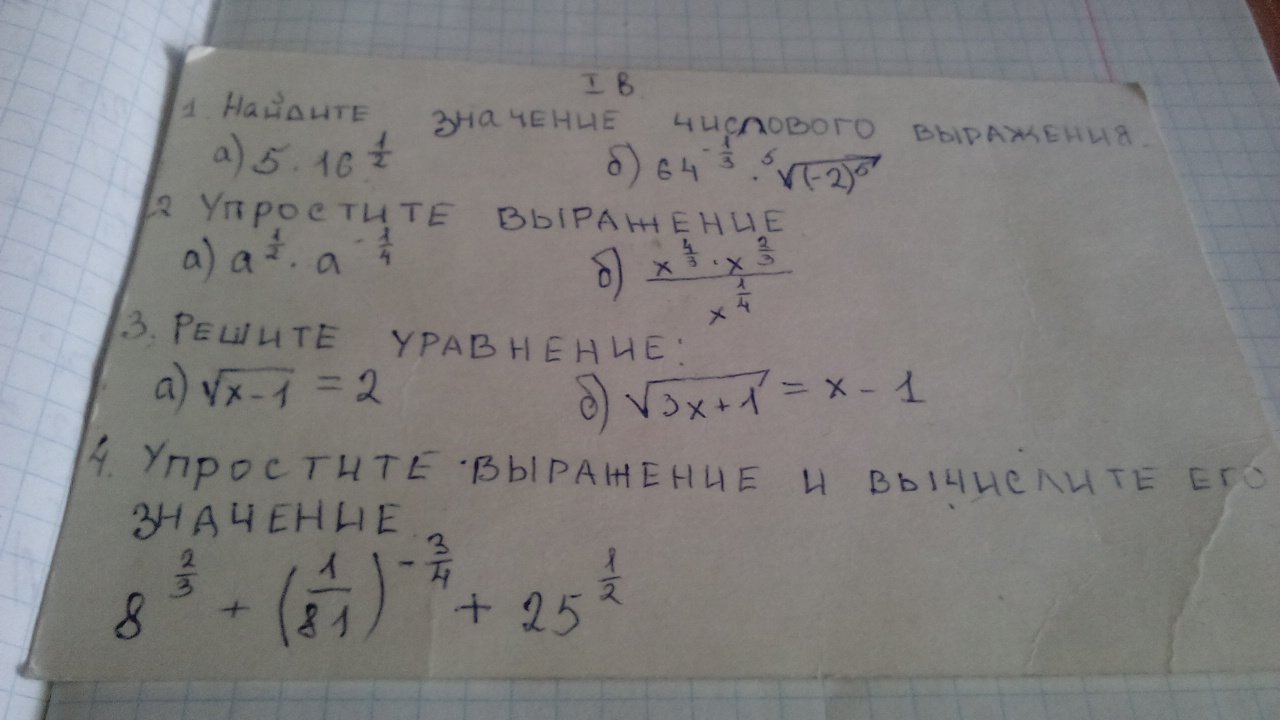 I В
1. Найдите значение числового выражения.
а) 5 · 16^(1/2) б) 64^(-1/3) · ⁵√(-2)⁵
2 Упростите выражение
а) a^(1/2) · a^(-1/4) б) (x^(4/3) · x^(2/3)) / x^(1/4)
3. Решите уравнение:
а) √(x-1) = 2 б) √(3x+1) = x - 1
4. Упростите выражение и вычислите его
значение
8^(2/3) + (1/81)^(-3/4) + 25^(1/2)